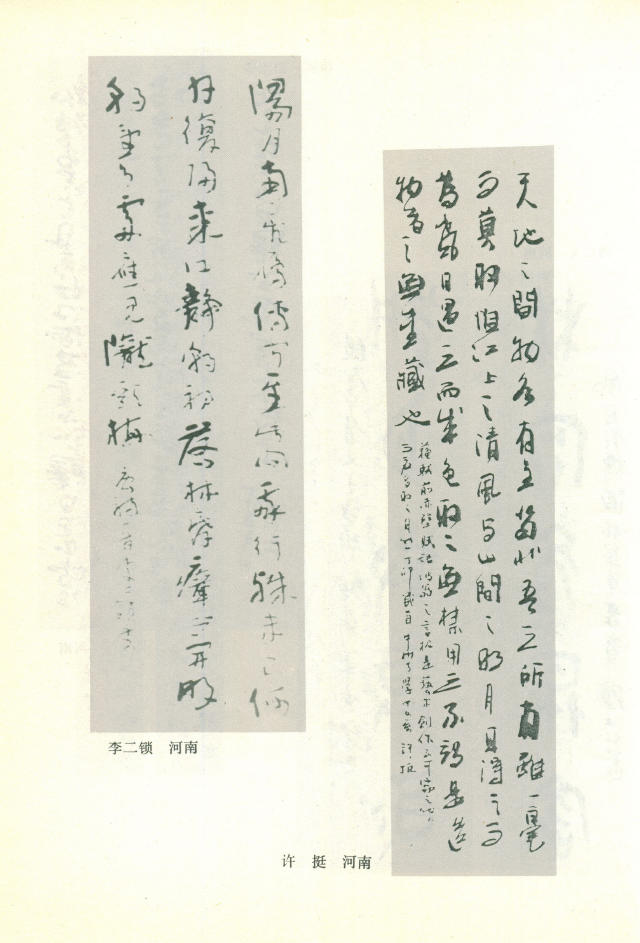 天地之間物各有主苟非吾之所有雖一毫
而莫取惟江上之清風與山間之明月耳得之而
為聲目遇之而成色取之無禁用之不竭是造
物者之無盡藏也
蘇軾前赤壁賦語
许 挺 河南
陽月南飛雁傳聞至此回我行殊未已何
日復歸來江静潮初落林昏瘴不開明
朝望鄉處應見隴頭梅 唐詩一首李二鎖書
李二锁 河南